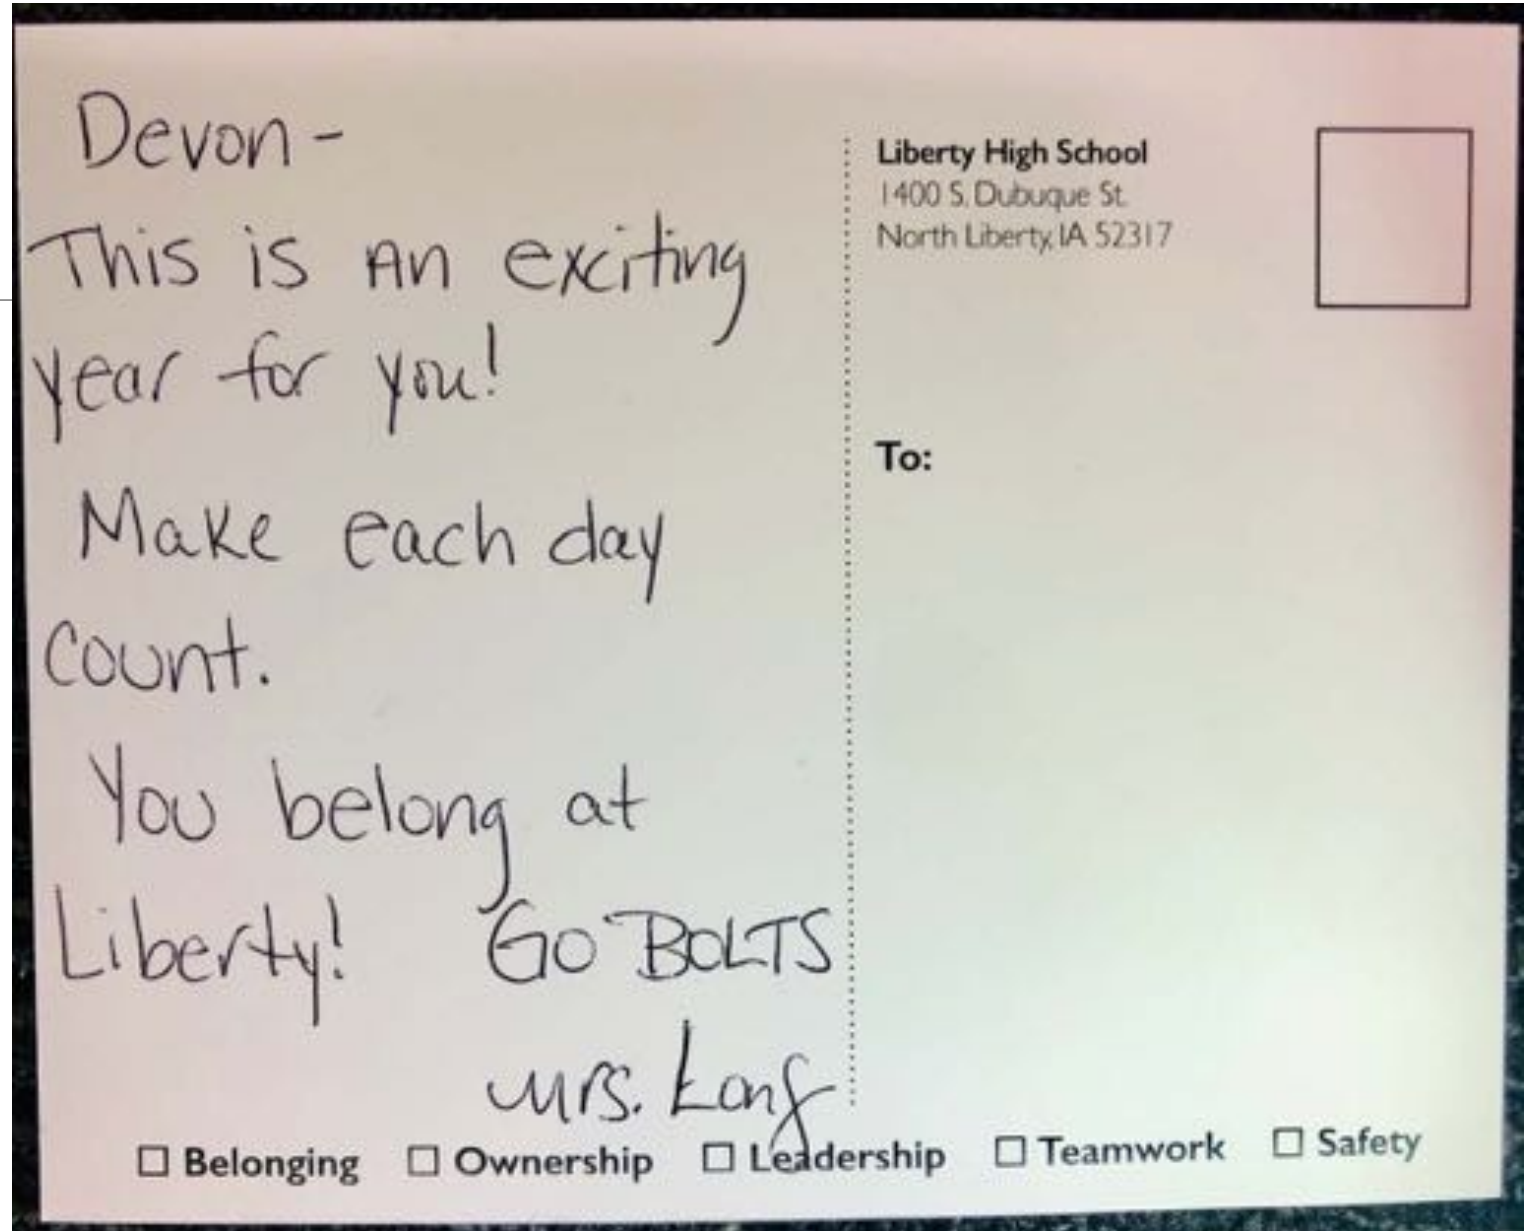 Devon-
This is An exciting
year for you!
Make each day
Count.
You belong at
Liberty! GO BOLTS
Mrs. Long
Liberty High School
1400 S. Dubuque St.
North Liberty, IA 52317
To:
☐ Belonging ☐ Ownership ☐ Leadership ☐ Teamwork ☐ Safety